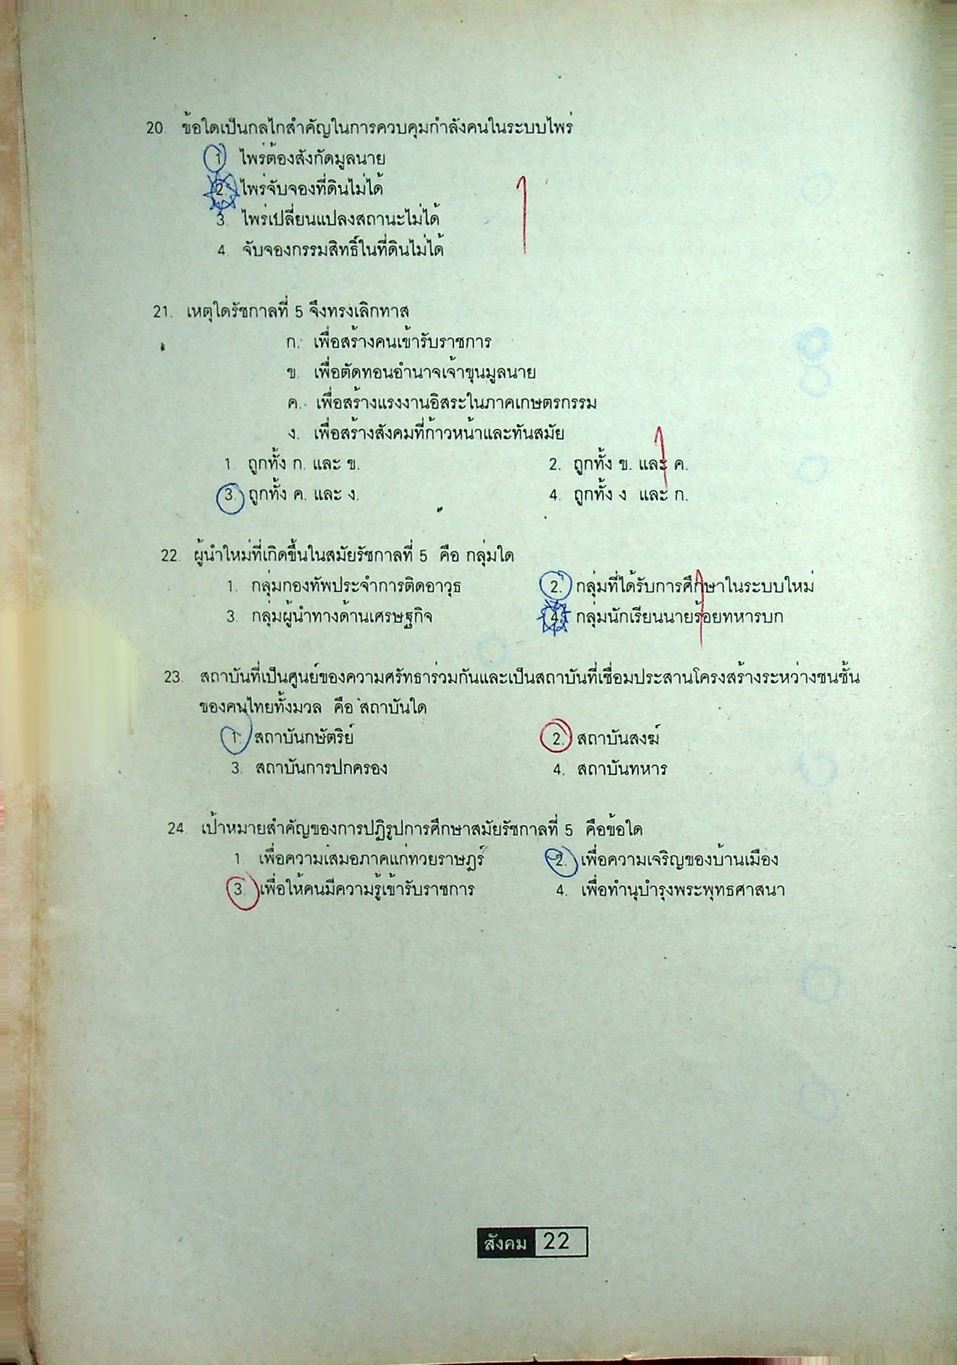 20. ข้อใดเป็นกลไกสำคัญในการควบคุมกำลังคนในระบบไพร่
1 ไพร่ต้องสังกัดมูลนาย
2. ไพร่จับจองที่ดินไม่ได้
3. ไพร่เปลี่ยนแปลงสถานะไม่ได้
4 จับจองกรรมสิทธิ์ในที่ดินไม่ได้
21. เหตุใดรัชกาลที่ 5 จึงทรงเลิกทาส
ก. เพื่อสร้างคนเข้ารับราชการ
ข. เพื่อตัดทอนอำนาจเจ้าขุนมูลนาย
ค. เพื่อสร้างแรงงานอิสระในภาคเกษตรกรรม
ง. เพื่อสร้างสังคมที่ก้าวหน้าและทันสมัย
1 ถูกทั้ง ก. และ ข. 2. ถูกทั้ง ข. และ ค.
3. ถูกทั้ง ค. และ ง. 4. ถูกทั้ง ง และ ก.
22. ผู้นำใหม่ที่เกิดขึ้นในสมัยรัชกาลที่ 5 คือ กลุ่มใด
1. กลุ่มกองทัพประจำการติดอาวุธ 2. กลุ่มที่ได้รับการศึกษาในระบบใหม่
3. กลุ่มผู้นำทางด้านเศรษฐกิจ 4. กลุ่มนักเรียนนายร้อยทหารบก
23. สถาบันที่เป็นศูนย์ของความศรัทธาร่วมกันและเป็นสถาบันที่เชื่อมประสานโครงสร้างระหว่างชนชั้น
ของคนไทยทั้งมวล คือ สถาบันใด
1. สถาบันกษัตริย์ 2. สถาบันสงฆ์
3. สถาบันการปกครอง 4. สถาบันทหาร
24. เป้าหมายสำคัญของการปฏิรูปการศึกษาสมัยรัชกาลที่ 5 คือข้อใด
1 เพื่อความเสมอภาคแก่ทวยราษฎร์ 2. เพื่อความเจริญของบ้านเมือง
3. เพื่อให้คนมีความรู้เข้ารับราชการ 4. เพื่อทำนุบำรุงพระพุทธศาสนา
สังคม 22